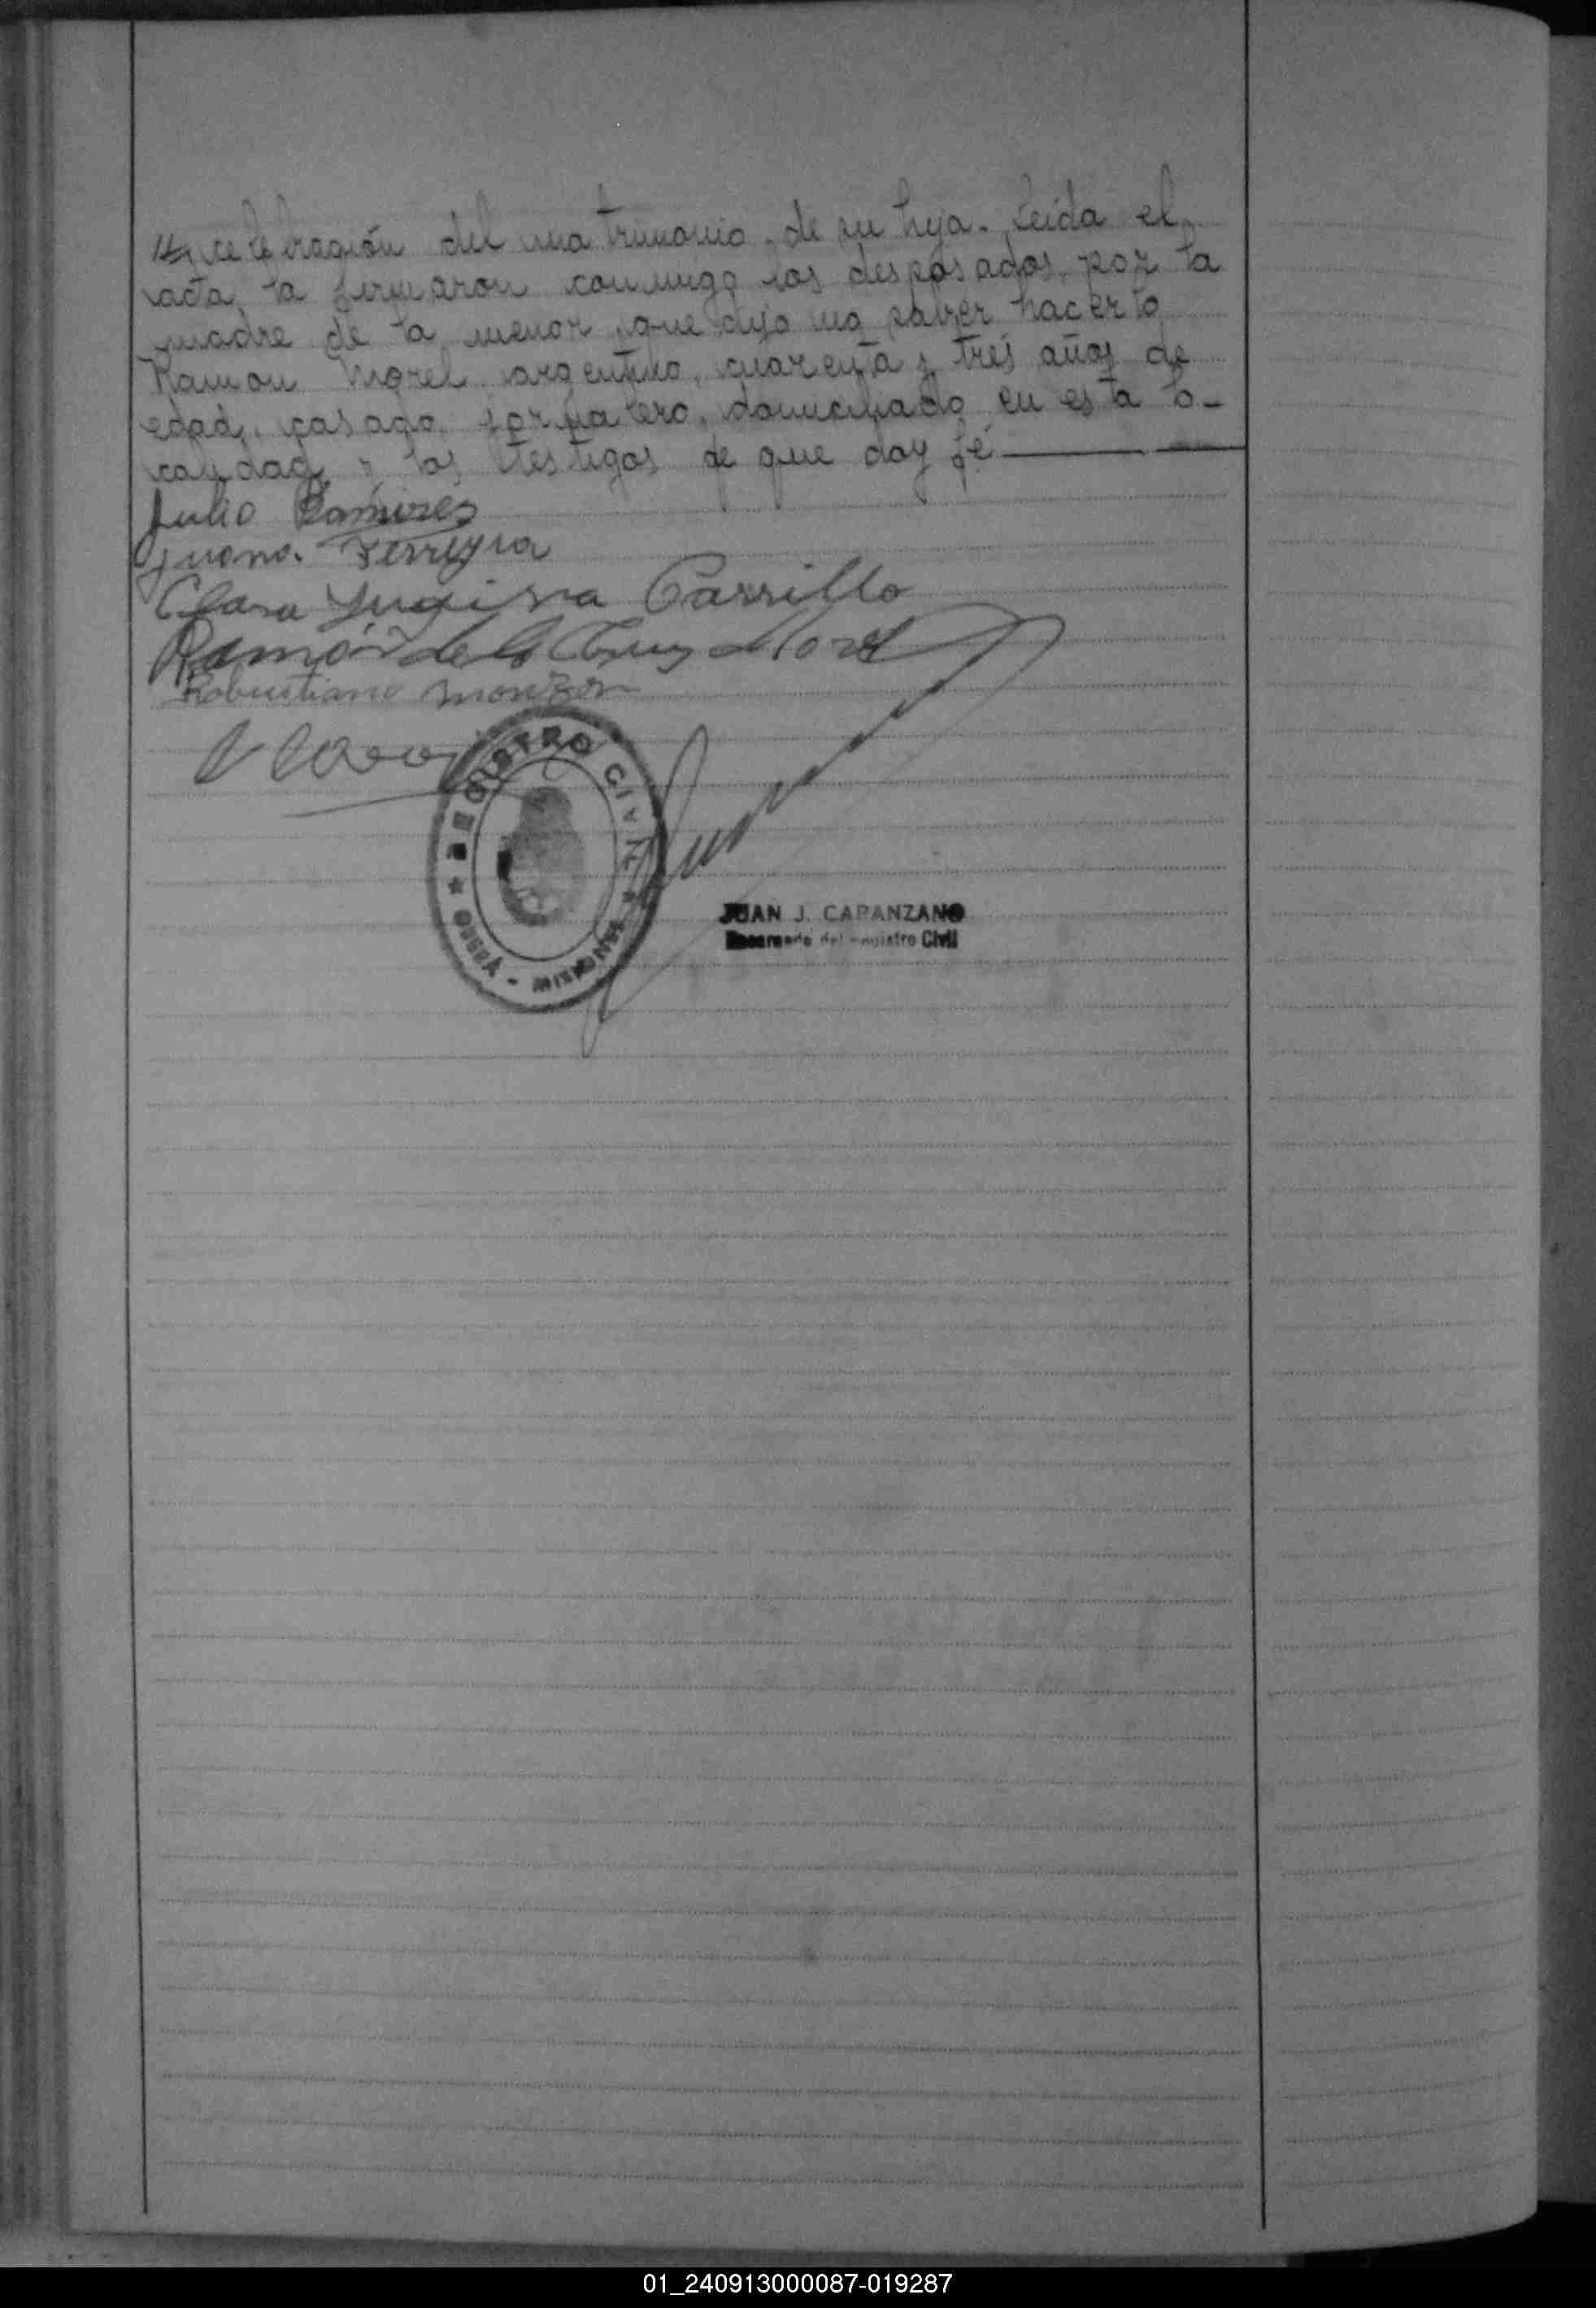 la celebración del matrimonio de su hija. Leída el
acta la firmaron conmigo los desposados, por la
madre de la menor que dijo no saber hacerlo
Ramon Morel argentino, cuarenta y tres años de
edad, casado, jornalero, domiciliado en esta lo-
calidad y los testigos de que doy fé
Julio Ramires
Juana Ferreyra
Clara Carrillo
Ramón de la Cruz Morel
Robustiano monzon
REGISTRO CIVIL
MISIONES
JUAN J. CAPANZANO
Encargado del Registro Civil
01_240913000087-019287